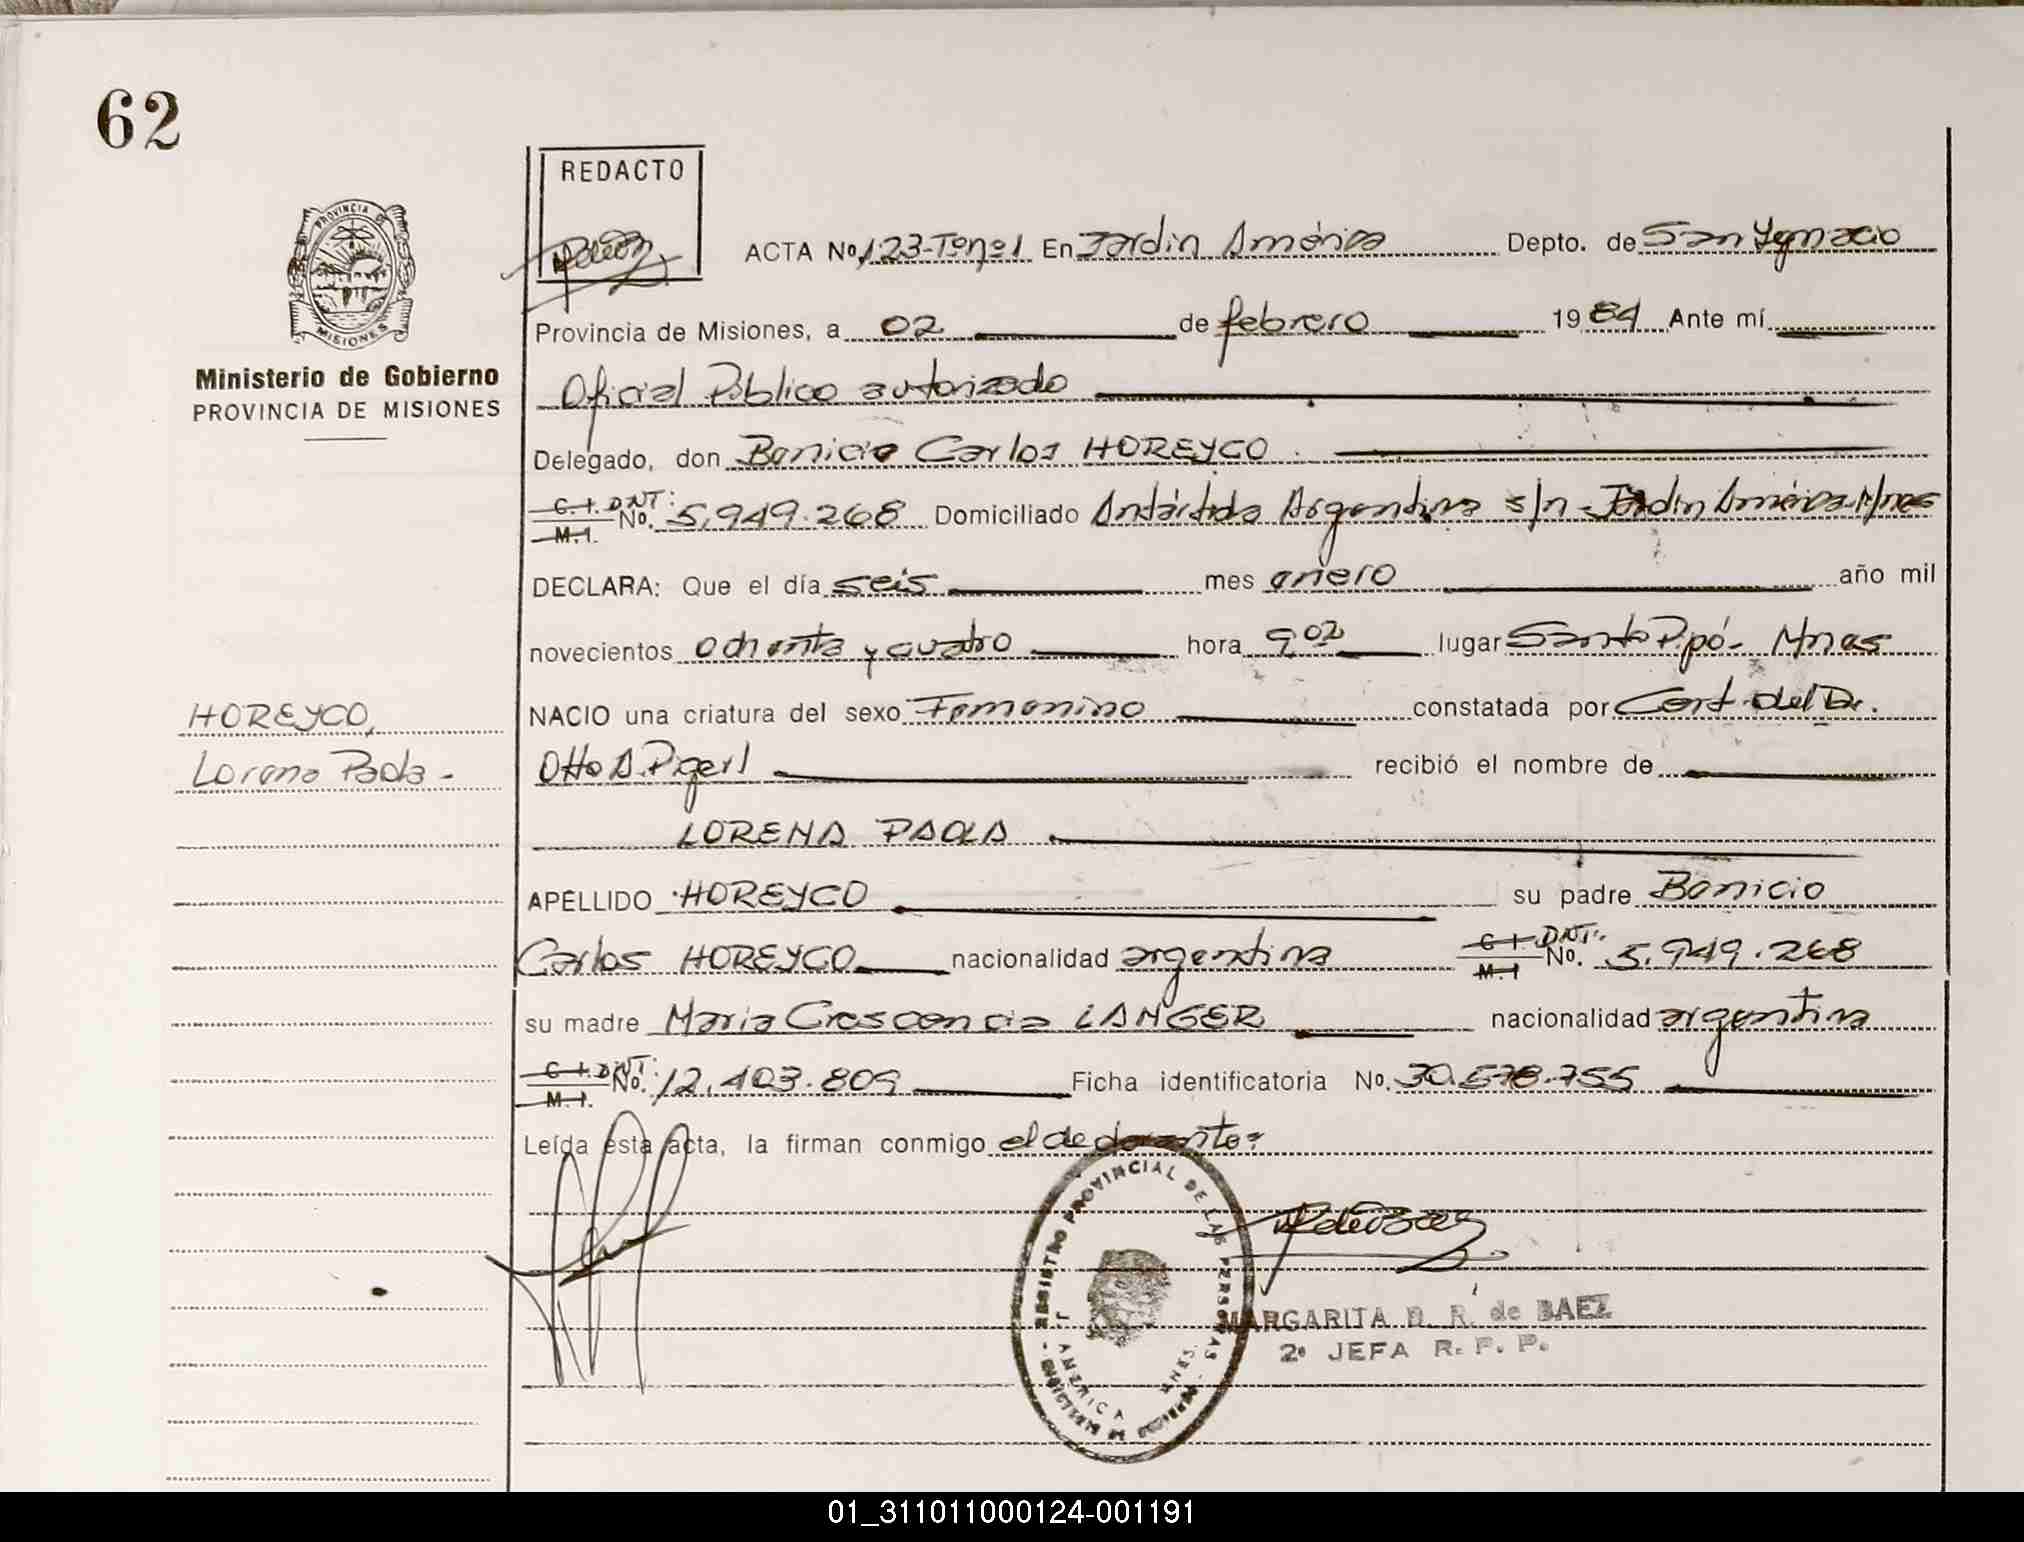 62
REDACTO
PROVINCIA DE
MISIONES
Ministerio de Gobierno
PROVINCIA DE MISIONES
ACTA No. 123-Tomo 1 En Jardín América Depto. de San Ygnacio
Provincia de Misiones, a 02 de febrero 1984 Ante mí
Oficial Público autorizado
Delegado, don Bonicio Carlos HOREYCO
C.I. DNI: M.I. No. 5.949.268 Domiciliado Antártida Argentina s/n - Jardín América - Mnes
DECLARA: Que el día seis mes enero año mil
novecientos ochenta y cuatro hora 9,02 lugar Santo Pipó - Mnes
HOREYCO, NACIO una criatura del sexo Femenino constatada por Cert. del Dr.
Lorena Paola - Otto A. recibió el nombre de
LORENA PAOLA
APELLIDO HOREYCO su padre Bonicio
Carlos HOREYCO nacionalidad argentina C.I. DNI: M.I No. 5.949.268
su madre Maria Crescencia LANGER nacionalidad argentina
C.I. DNI: M.I. No. 12.403.809 Ficha identificatoria No. 30.578.755
Leída esta acta, la firman conmigo el declarante:
REGISTRO PROVINCIAL DE LAS PERSONAS
J. AMERICA MNES.
MARGARITA B. R. de BAEZ
2ª JEFA R. P. P.
01_311011000124-001191